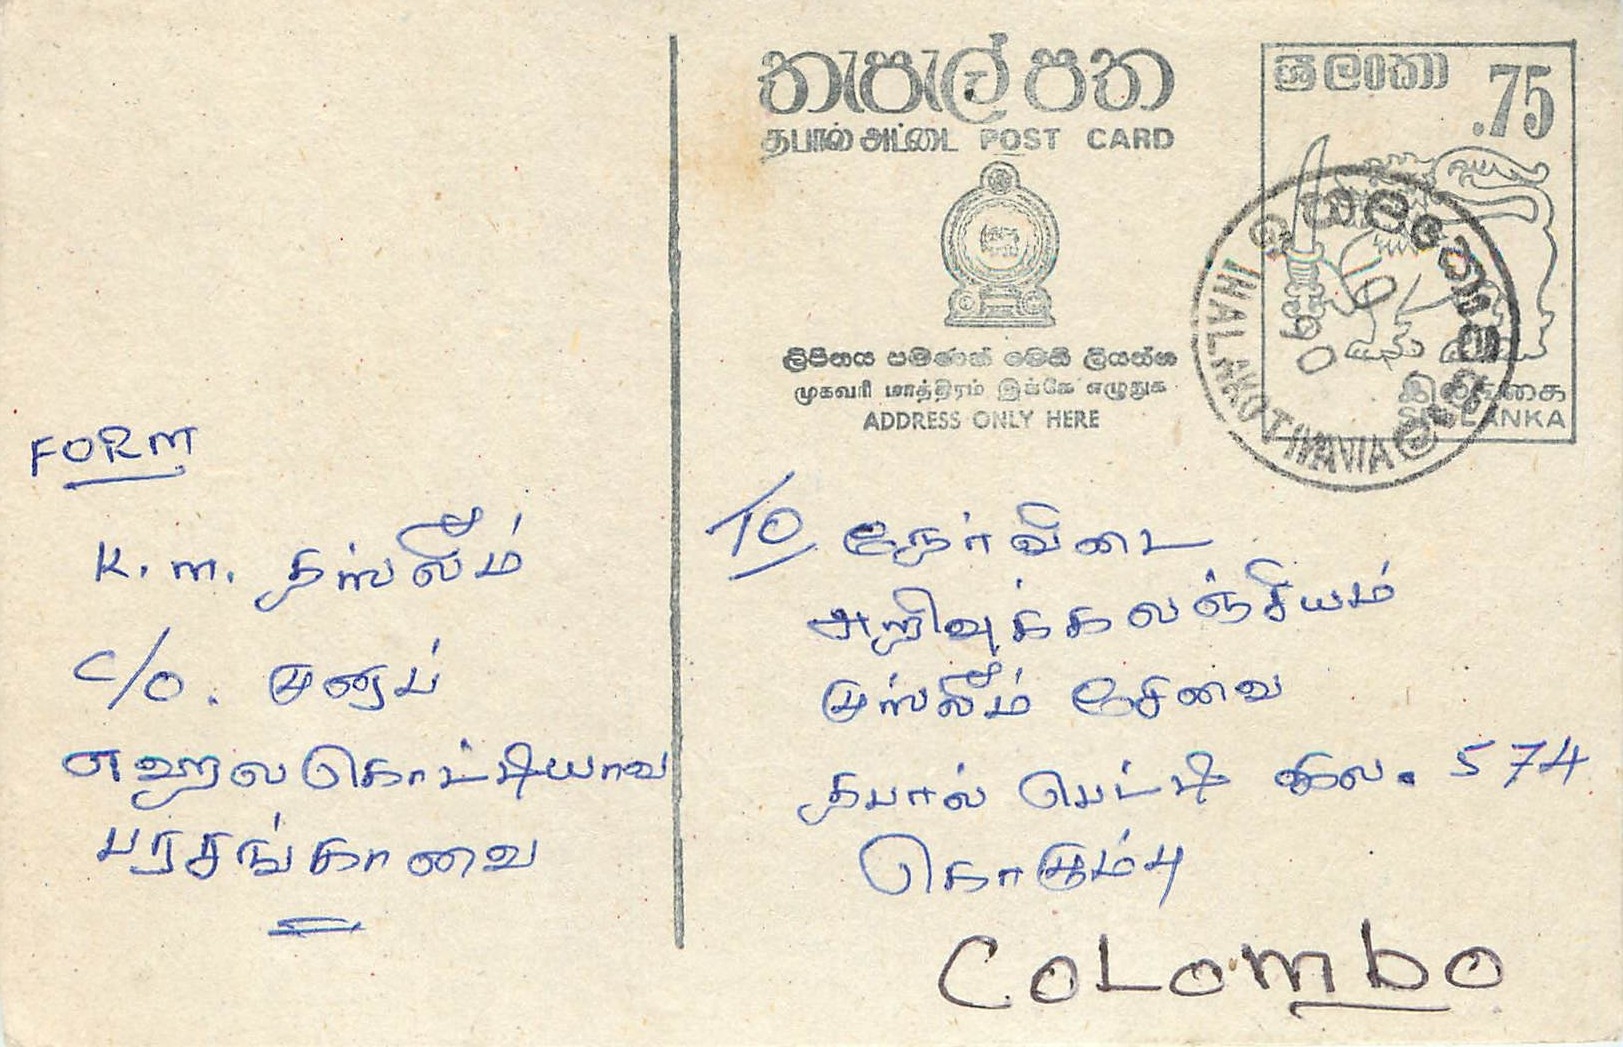 තැපැල් පත
தபால் அட்டை POST CARD
ලිපිනය පමණක් මෙහි ලියන්න
முகவரி மாத்திரம் இங்கே எழுதுக
ADDRESS ONLY HERE
ශ්‍රී ලංකා .75
இலங்கை
SRI LANKA
IHALAKOTIYAWA
90
FORM
K. m. தஸ்லீம்
C/O.
எஹலகொட்டியாவ
பரசங்காவை
TO நேர்விடை
அறிவுக்களஞ்சியம்
முஸ்லீம் சேவை
தபால் பெட்டி இல. 574
கொழும்பு
COLOmbo